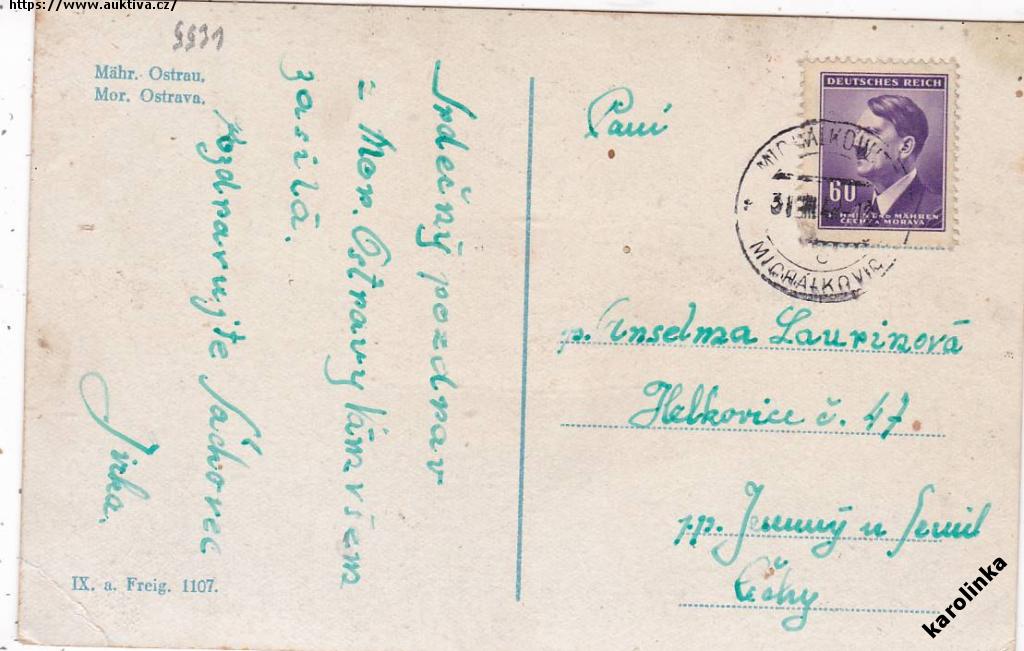 https://www.auktiva.cz/
9931
Mähr. Ostrau.
Mor. Ostrava.
Srdečný pozdrav
z Mor. Ostravy Vám všem
zasílá.
Pozdravujte
Jirka.
IX. a. Freig. 1107.
Paní
DEUTSCHES REICH
60
BÖHMEN UND MÄHREN
ČECHY A MORAVA
MICHALKOWITZ
MICHÁLKOVICE
p. Anselma Laurinová
Helkovice č. 47
pp. Jesenný u Semil
Čechy
karolinka